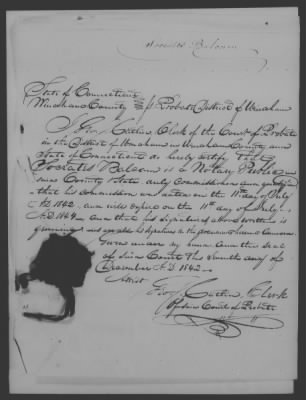 Socrates Balcom
State of Connecticut
Windham County ss Probate District of Windham
I Geo. Catlin Clerk of the Court of Probate
in the District of Windham in Windham County and
State of Connecticut do hereby certify that
Socrates Balcom is a Notary Public in
said County & State duly Commissioned and qualified
that his commission was dated on the 11th day of July
A.D. 1842, and will expire on the 11th day of July
A.D. 1844 and that his signature above written is
genuine
Given under my hand and the seal
of said Court this day of
December A.D. 1842
Attest
Geo. Catlin Clerk
of said Court of Probate